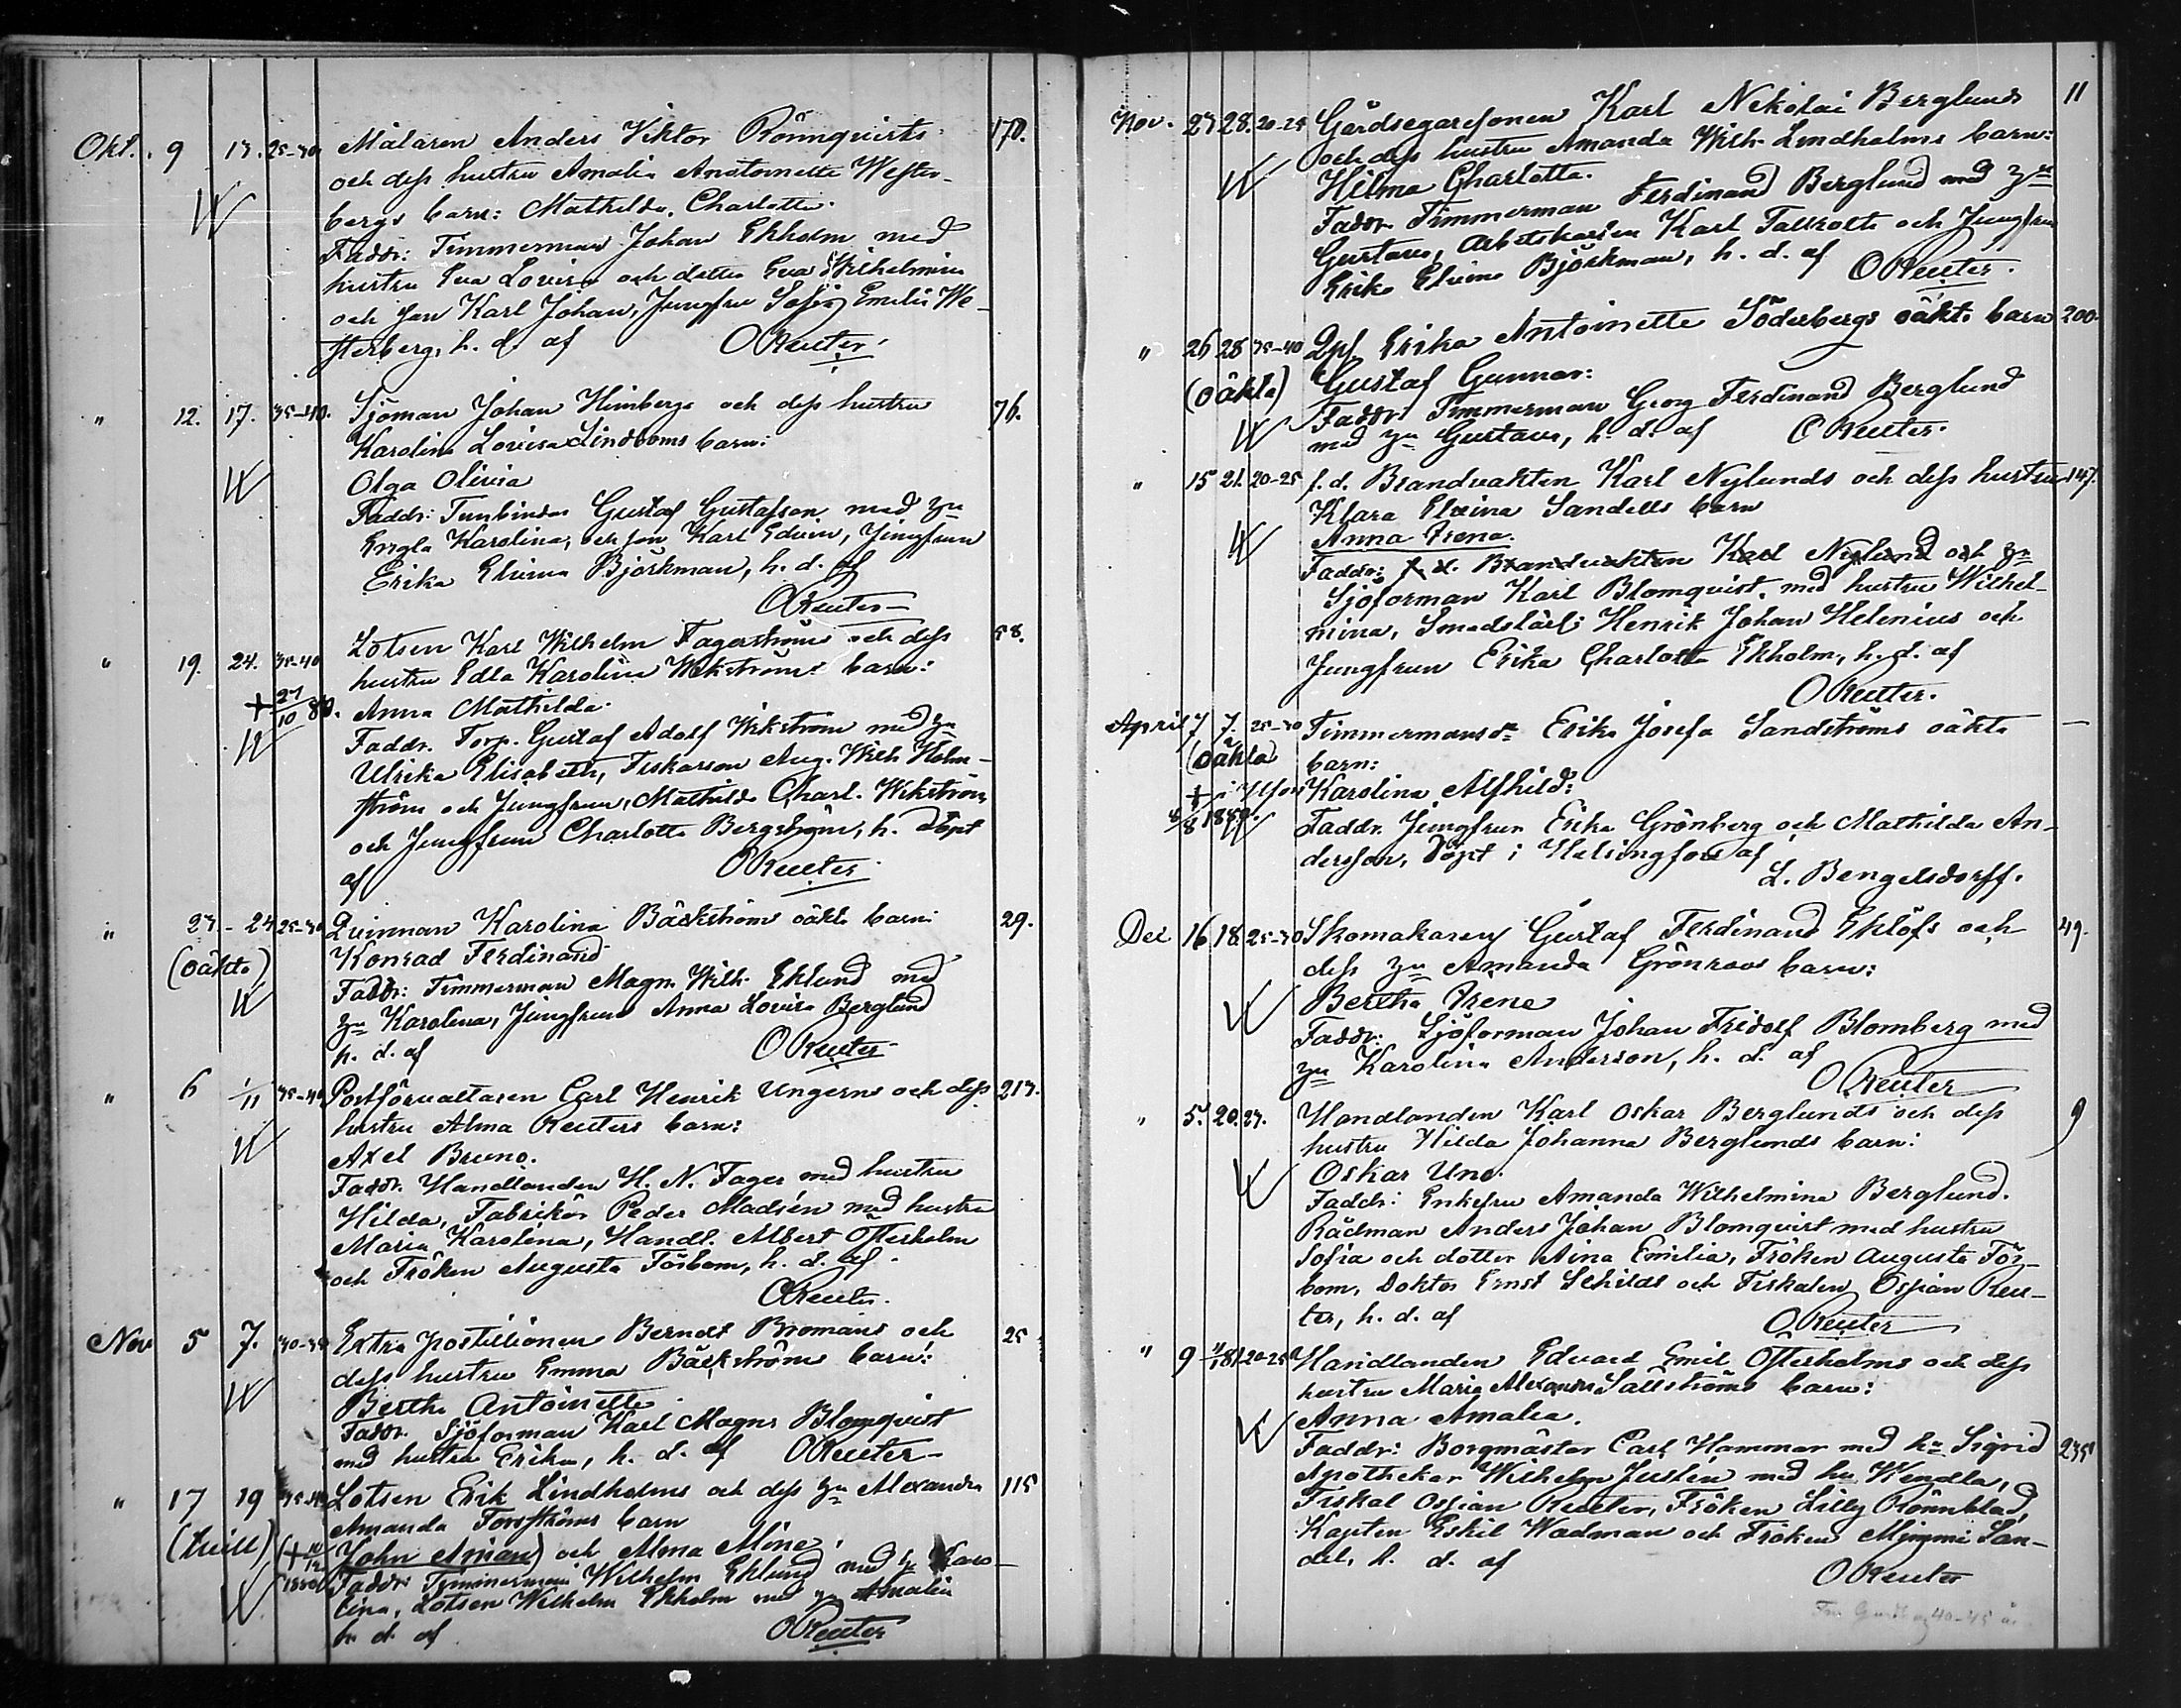 Okt. 9 13. 25-30 Målaren Anders Viktor Rönnqvists 170.
och dess hustru Amalia Antoinette Wester-
bergs barn: Mathilda Charlotta.
Faddr: Timmerman Johan Ekholm med
hustru Eva Lovisa och dotter Eva Wilhelmina
och son Karl Johan, Jungfru Sofia Emelie We-
sterberg, h. d. af OReuter
" 12. 17. 35-40. Sjöman Johan Himbergs och dess hustru 76.
Karolina Lovisa Lindroms barn:
Olga Olivia
Faddr: Tunnbindar Gustaf Gustafsson med hu
Engla Karolina, och son Karl Edvin, Jungfrun
Erika Elvina Björkman, h. d. af
OReuter
" 19. 24. 35-40 Lotsen Karl Wilhelm Fagerströms och dess 58.
hustru Edla Karolina Wikströms barn:
+ 27/10 80. Anna Mathilda.
Faddr. Torp. Gustaf Adolf Wikström med hu
Ulrika Elisabeth, Fiskarson Aug. Wilh. Holm-
ström och Jungfrun Mathilda Charl. Wikström
och Jungfrun Charlotta Bergström, h. döpt
af OReuter
" 23. - 24 25-30 Qvinnan Karolina Bäckströms oäkta barn: 29.
(oäkta) Konrad Ferdinand
Faddr: Timmerman Magn. Wilh. Eklund med
hu Karolina, Jungfrun Anna Lovisa Berglund
h. d. af OReuter
" 6 1/11 35-40 Postförvaltaren Carl Henrik Ungerns och dess 213.
hustru Alma Reuters barn:
Axel Bruno.
Faddr. Handlanden H. N. Fager med hustru
Hilda, Fabrikör Peder Madsén med hustru
Maria Karolina, Handl. Albert Österholm
och Fröken Augusta Törbom, h. d. af
OReuter.
Nov 5 7. 30-35 Extra postillionen Berndt Bromans och 25
dess hustru Emma Bäckströms barn:
Bertha Antoinette
Faddr. Sjöforman Karl Magns Blomqvist
med hustru Erika, h. d. af OReuter
" 17 19 35-40 Lotsen Erik Lindholms och dess hu Alexandra 115
Amanda Forsströms barn
John Arian) och Alma Mina
Faddr: Timmerman Wilhelm Eklund med hu Karo-
lina, Lotsen Wilhelm Ekholm med hu Amalia
h. d. af OReuter
11
Nov. 23 28. 20-25 Gårdsegaresonen Karl Nikolai Berglunds
och dess hustru Amanda Wilh. Lindholms barn:
Hilma Charlotta.
Faddr. Timmerman Ferdinand Berglund med hu
Gustava, Arbetskarlen Karl Tallroth och Jungfrun
Erika Elvina Björkman, h. d. af OReuter.
" 26 28 35-40 Qpf Erika Antoinette Söderbergs oäkta barn 200.
(oäkta) Gustaf Gunnar:
Faddr: Timmerman Georg Ferdinand Berglund
med hu Gustava, h. d. af OReuter.
" 15 21. 20-25 f. d. Brandvakten Karl Nylunds och dess hustrus 147.
Klara Elvina Sandells barn
Anna Irene.
Faddr: f. d. Brandvakten Karl Nylund och hu
Sjöforman Karl Blomqvist. med hustru Wilhel-
mina, Smedslärl. Henrik Johan Helenius och
Jungfrun Erika Charlotta Ekholm, h. d. af
OReuter.
April 7 7. 25-30 Timmermansdr Erika Josefa Sandströms oäkta —
(oäkta) barn:
+ i Hfors Karolina Alfhild:
Faddr. Jungfrun Erika Grönberg och Mathilda An-
dersson, Döpt i Helsingfors af
L. Bengelsdorff.
Dec 16 18. 25-30 Skomakaren Gustaf Ferdinand Eklöfs och 49.
dess hu Amanda Grönroos barn:
Bertha Irene
Faddr: Sjöforman Johan Fridolf Blomberg med
hu Karolina Anderson, h. d. af
OReuter
" 5. 20. 27. Handlanden Karl Oskar Berglunds och dess 9
hustru Hilda Johanna Berglunds barn:
Oskar Uno.
Faddr: Enkefru Amanda Wilhelmina Berglund.
Rådman Anders Johan Blomqvist med hustru
Sofia och dotter Aina Emilia, Fröken Augusta Tör-
bom, Doktor Ernst Schildt och Fiskalen Ossian Reu-
ter, h. d. af OReuter
" 9 81 20-25 Handlanden Edvard Emil Österholms och dess
hustru Maria Alexandra Sällströms barn:
Anna Amalia.
Faddr: Borgmästar Carl Hammar med hu Sigrid 235
Apothekar Wilhelm Juslin med hu Wendla,
Fiskal Ossian Reuter, Fröken Lilly Rönnblad,
Kapten Eskil Wadman och Fröken Mimmi San-
del, h. d. af
OReuter
40-45 år